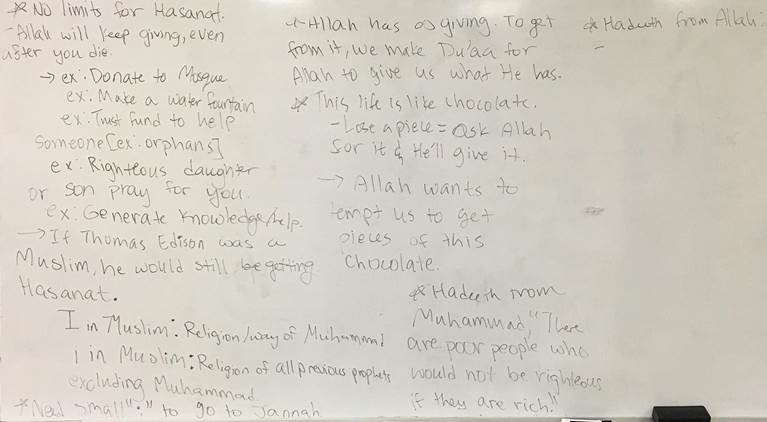 * No limits for Hasanat.
- Allah will keep giving, even
after you die.
→ ex: Donate to Mosque
ex: Make a water fountain
ex: Trust Fund to help
someone [ex: orphans]
ex: Righteous daughter
or son pray for you.
ex: Generate knowledge/help.
→ If Thomas Edison was a
Muslim, he would still be getting
Hasanat.
I in Muslim: Religion/way of Muhammad
i in Muslim: Religion of all previous prophets
excluding Muhammad.
* Need small "i" to go to Jannah
- Allah has ∞ giving. To get
from it, we make Du'aa for
Allah to give us what He has.
* This life is like chocolate.
- Lose a piece = Ask Allah
for it & He'll give it.
→ Allah wants to
tempt us to get
pieces of this
Chocolate.
* Hadeeth from
Muhammad, "There
are poor people who
would not be righteous
if they are rich."
* Hadeeth from Allah:
-